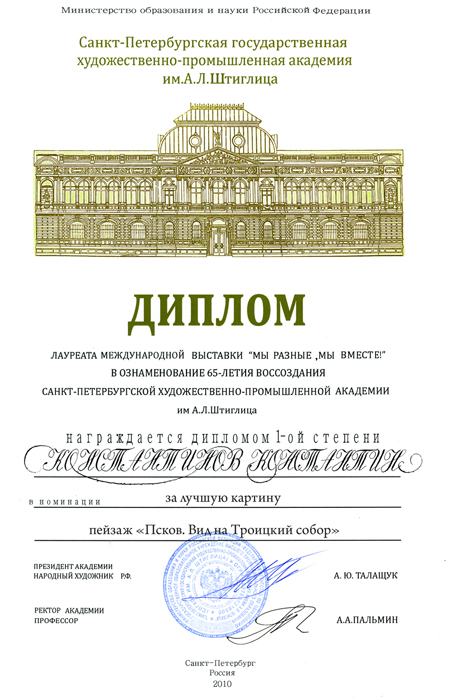 Министерство образования и науки Российской Федерации
Санкт-Петербургская государственная
художественно-промышленная академия
им.А.Л.Штиглица
ДИПЛОМ
ЛАУРЕАТА МЕЖДУНАРОДНОЙ ВЫСТАВКИ "МЫ РАЗНЫЕ ,МЫ ВМЕСТЕ!"
В ОЗНАМЕНОВАНИЕ 65-ЛЕТИЯ ВОССОЗДАНИЯ
САНКТ-ПЕТЕРБУРГСКОЙ ХУДОЖЕСТВЕННО-ПРОМЫШЛЕННОЙ АКАДЕМИИ
им А.Л.Штиглица
награждается дипломом 1-ой степени
КОНСТАНТИНОВ КОНСТАНТИН
в номинации за лучшую картину
пейзаж «Псков. Вид на Троицкий собор»
ПРЕЗИДЕНТ АКАДЕМИИ
НАРОДНЫЙ ХУДОЖНИК Р.Ф. А. Ю. ТАЛАЩУК
РЕКТОР АКАДЕМИИ
ПРОФЕССОР А.А.ПАЛЬМИН
Санкт-Петербург
Россия
2010